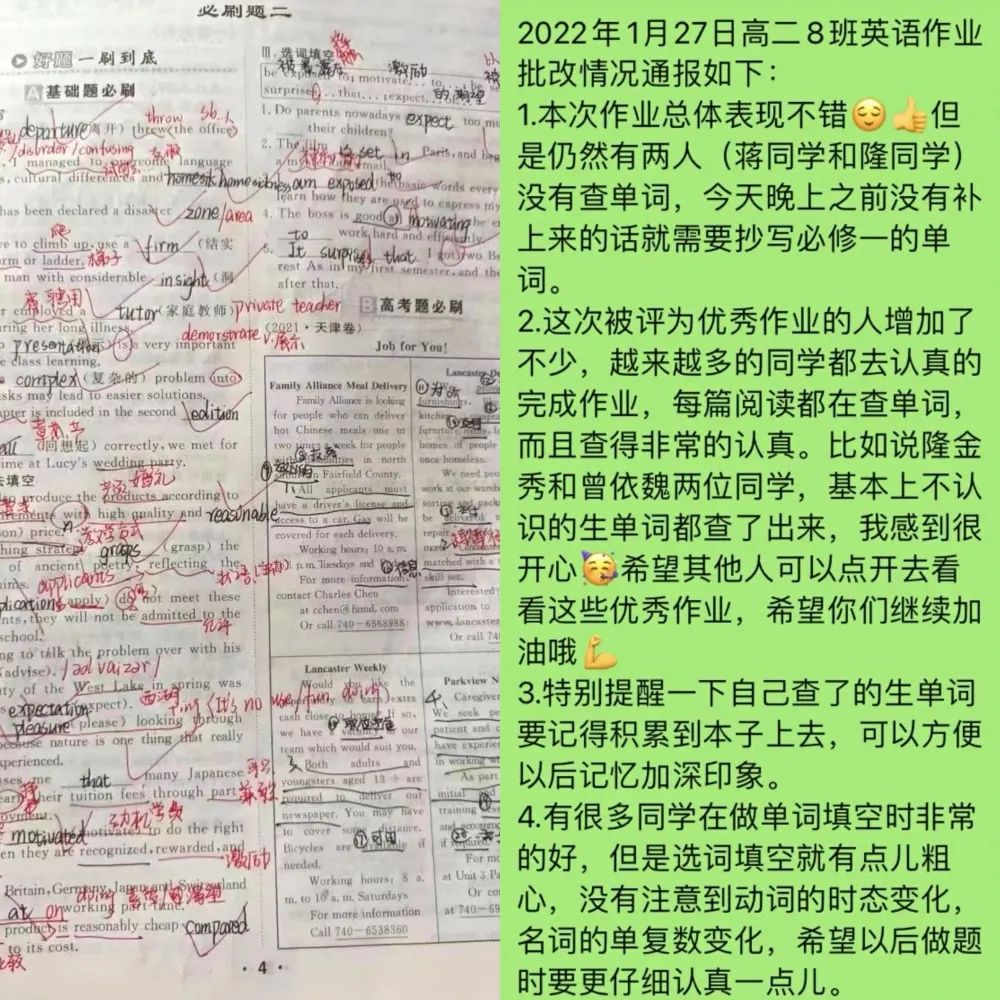 必刷题二
好题一刷到底
A 基础题必刷
departure(离开) threw the office
throw sb.
/disorder/confusing
managed to overcome language
s, cultural differences and homesick homesickness
has been declared a disaster zone/area
爬
ve to climb up, use a firm (结实
orm or ladder. 梯子
man with considerable insight (洞
er employed a tutor(家庭教师) private teacher
aring her long illness.
demonstrate v.展示
presentation is a very important
e class learning.
complex (复杂的) problem into
asks may lead to easier solutions.
apter is included in the second edition
(回想起) correctly, we met for
ime at Lucy's wedding party.
婚礼
去填空
ng to produce the products according to
rements with high quality and reasonable
son) price.
hing strategy grasps (grasp) the
of ancient poetry, reflecting the
aims.
applicants
plication (apply) do not meet these
nts, they will not be admitted to the
school.
允许
ng to talk the problem over with his
(advise). /advaizər/
ty of the West Lake in spring was
西湖
expectation (expect).
pleasure (please) looking through
because nature is one thing that really
xperienced.
sses me that many Japanese
earn their tuition fees through part
oyment.
动机
motivated (motivate) to do the right
en they are recognized, rewarded, and
激励
Britain, Germany, Japan and Switzerland
at on working part-time.
product is reasonably cheap compared
to its cost.
Ⅲ. 选词填空
激励
be exposed to; motivate... to...
surprise... that...; expect...
1. Do parents nowadays expect too mu
their children?
2. The film is set in Paris, and
am exposed to the basic words every
learn how they are used to express my
4. The boss is good at motivating
to work hard and efficiently
5. It surprises that I got two Be
rest As in my first semester, and the
after that.
B 高考题必刷
(2021·天津卷)
Job for You!
Family Alliance Meal Delivery
Family Alliance is looking
for people who can deliver
hot Chinese meals one to
two times a week for people
with disabilities in north
suburban Fairfield County.
All applicants must
have a driver's license and
access to a car. Gas will be
covered for each delivery.
Working hours: 10 a. m.
p. m. Tuesdays and
For more information,
contact Charles Chen
at cchen@fsmd. com
Or call 740-6568988
furnishings.
kitchen
furniture
homes of people
once homeless.
We need peo
work at our wareh
sort and pack
be delivered
repair
matched with a
skill set.
Interested
application to
www. lancaster
Or call 74
Lancaster Weekly
Would you like the
opportunity to earn extra
cash close to home? If so,
we have a vacancy in our
team which would suit you.
Both adults and
youngsters aged 13 + are
required to deliver our
newspaper. You may have
to cover some distance.
Bicycles are available if
needed.
Working hours: 8 a.
m. to 10 a. m. Saturdays
For more information
Call 740-6538360
Parkview N
Caregiver
We seek peop
patient and c
have experien
in working wi
As part
initial
training
and accommo
if required.
For mo
at Unit 3 Pa
Or co
at 740-69
· 4 ·
2022年1月27日高二8班英语作业
批改情况通报如下：
1.本次作业总体表现不错😌👍但
是仍然有两人（蒋同学和隆同学）
没有查单词，今天晚上之前没有补
上来的话就需要抄写必修一的单
词。
2.这次被评为优秀作业的人增加了
不少，越来越多的同学都去认真的
完成作业，每篇阅读都在查单词，
而且查得非常的认真。比如说隆金
秀和曾依魏两位同学，基本上不认
识的生单词都查了出来，我感到很
开心🥳希望其他人可以点开去看
看这些优秀作业，希望你们继续加
油哦💪
3.特别提醒一下自己查了的生单词
要记得积累到本子上去，可以方便
以后记忆加深印象。
4.有很多同学在做单词填空时非常
的好，但是选词填空就有点儿粗
心，没有注意到动词的时态变化，
名词的单复数变化，希望以后做题
时要更仔细认真一点儿。